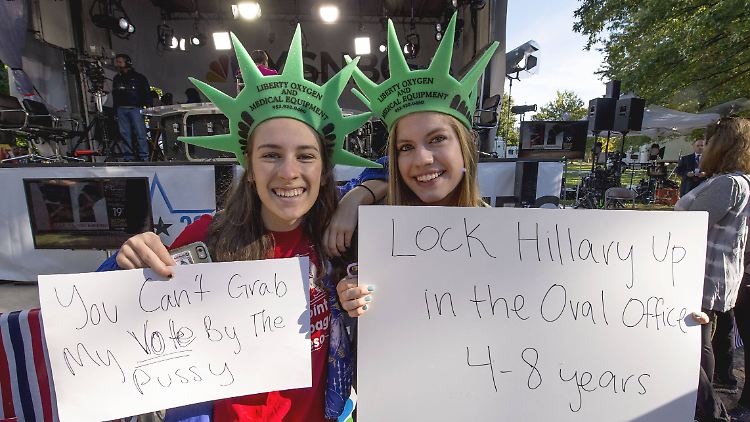 MSNBC
LIBERTY OXYGEN
AND
MEDICAL EQUIPMENT
952.920.0460
LIBERTY OXYGEN
AND
MEDICAL EQUIPMENT
952-920-0460
You Can't Grab
My Vote By The
Pussy
Lock Hillary Up
in the Oval Office
4-8 years
19
20